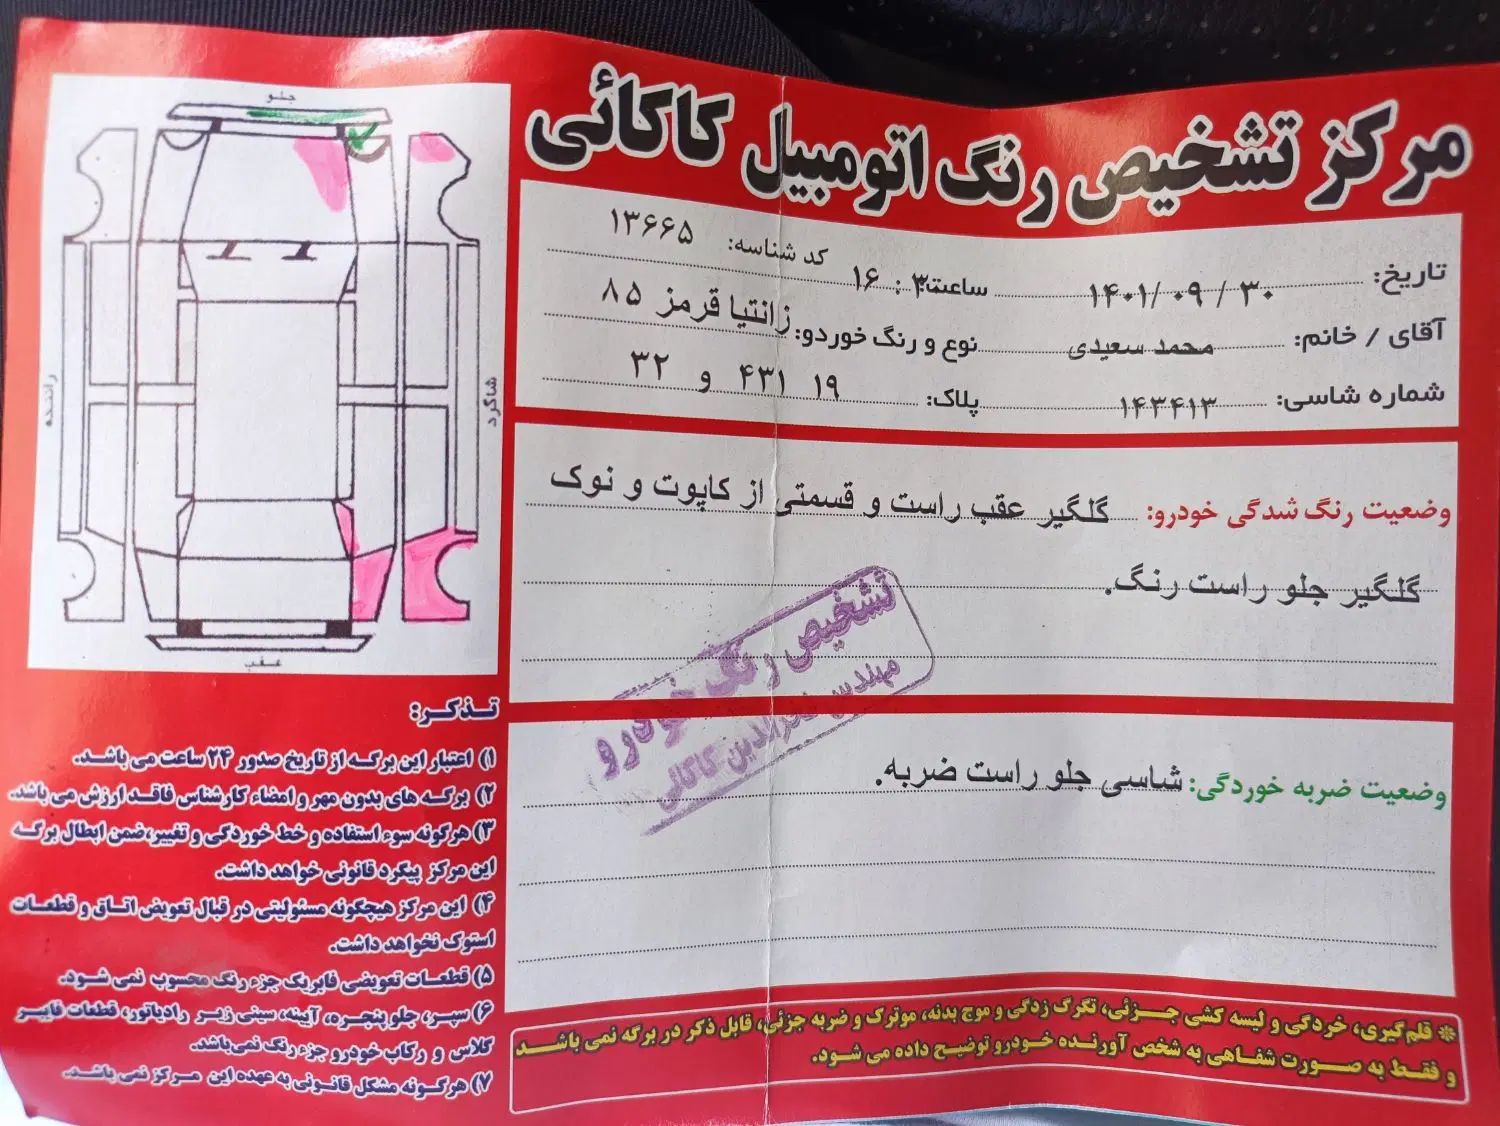 مرکز تشخیص رنگ اتومبیل کاکائی
کد شناسه: ۱۳۶۶۵
تاریخ: ۱۴۰۱/ ۰۹ / ۳۰ ساعت: ۱۶ : ۳
آقای / خانم: محمد سعیدی نوع و رنگ خوردو: زانتیا قرمز ۸۵
شماره شاسی: ۱۴۳۴۱۳ پلاک: ۱۹ ۴۳۱ و ۳۲
وضعیت رنگ شدگی خودرو: گلگیر عقب راست و قسمتی از کاپوت و نوک
گلگیر جلو راست رنگ.
تشخیص رنگ خودرو
مهندس فخرالدین کاکائی
وضعیت ضربه خوردگی: شاسی جلو راست ضربه.
✽ قلم‌گیری، خردگی و لیسه کشی جزئی، تگرگ زدگی و موج بدنه، موترک و ضربه جزئی، قابل ذکر در برگه نمی باشد
و فقط به صورت شفاهی به شخص آورنده خودرو توضیح داده می شود.
جلو
راننده
شاگرد
عقب
تذکر:
۱) اعتبار این برگه از تاریخ صدور ۲۴ ساعت می باشد.
۲) برگه های بدون مهر و امضاء کارشناس فاقد ارزش می باشد.
۳) هرگونه سوء استفاده و خط خوردگی و تغییر،ضمن ابطال برگه
این مرکز پیگرد قانونی خواهد داشت.
۴) این مرکز هیچگونه مسئولیتی در قبال تعویض اتاق و قطعات
استوک نخواهد داشت.
۵) قطعات تعویضی فابریک جزء رنگ محسوب نمی شود.
۶) سپر، جلو پنجره، آیینه، سینی زیر رادیاتور، قطعات فایبر
گلاس و رکاب خودرو جزء رنگ نمی‌باشد.
۷) هرگونه مشکل قانونی به عهده این مرکز نمی باشد.